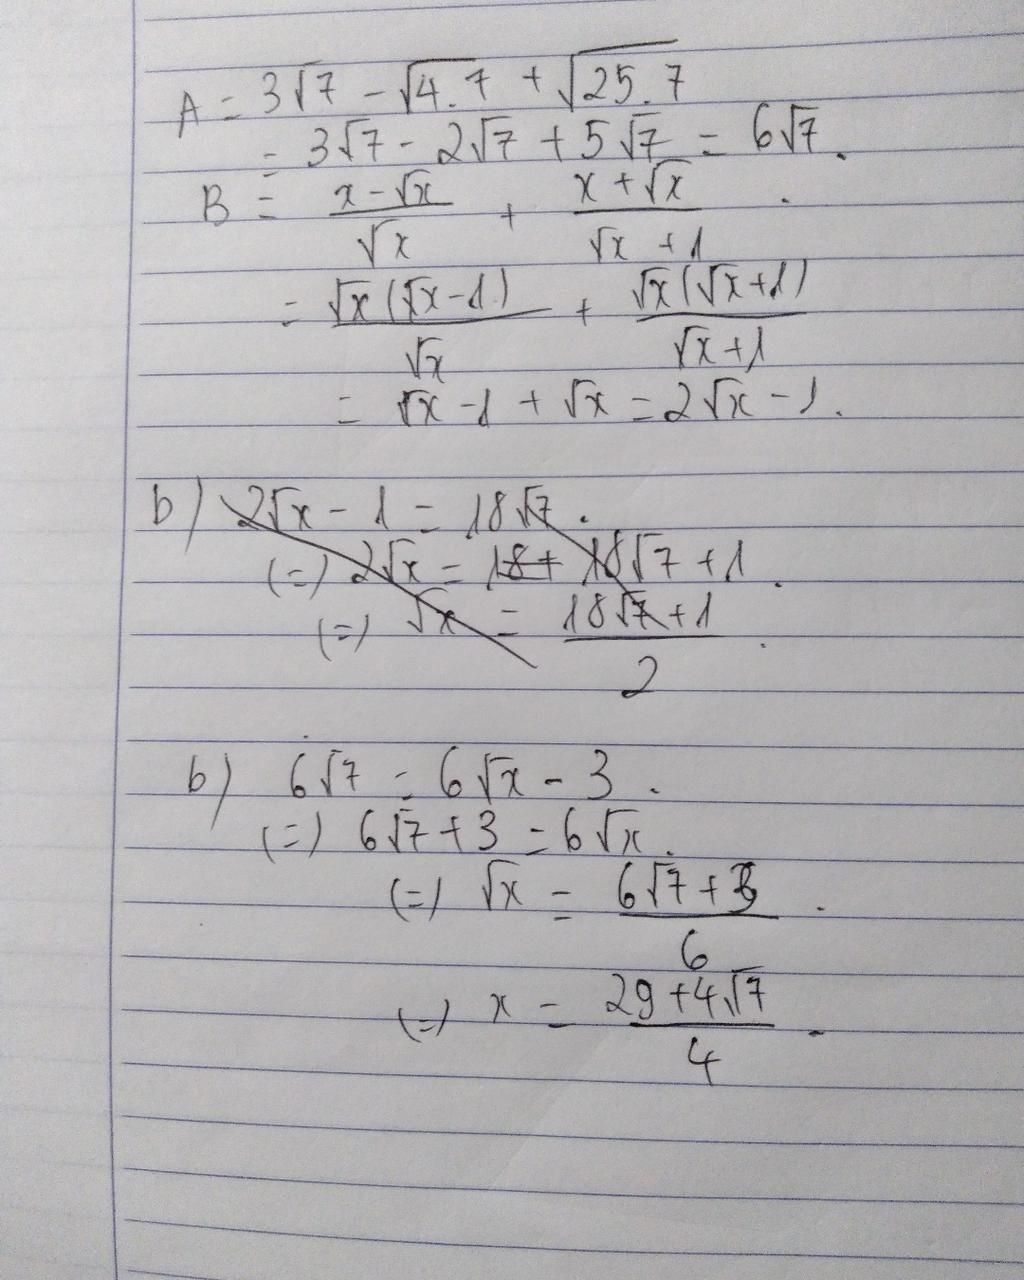 A = 3√7 - √4.7 + √25.7
= 3√7 - 2√7 + 5√7 = 6√7.
B = (x-√x)/√x + (x+√x)/(√x+1).
= √x(√x-1)/√x + √x(√x+1)/(√x+1)
= √x - 1 + √x = 2√x - 1.
b) 2√x - 1 = 18√7.
(=) 2√x = 18+ 18√7 + 1.
(=) √x = (18√7+1)/2.
b) 6√7 = 6√x - 3.
(=) 6√7 + 3 = 6√x.
(=) √x = (6√7+3)/6.
(=) x = (29+4√7)/4.